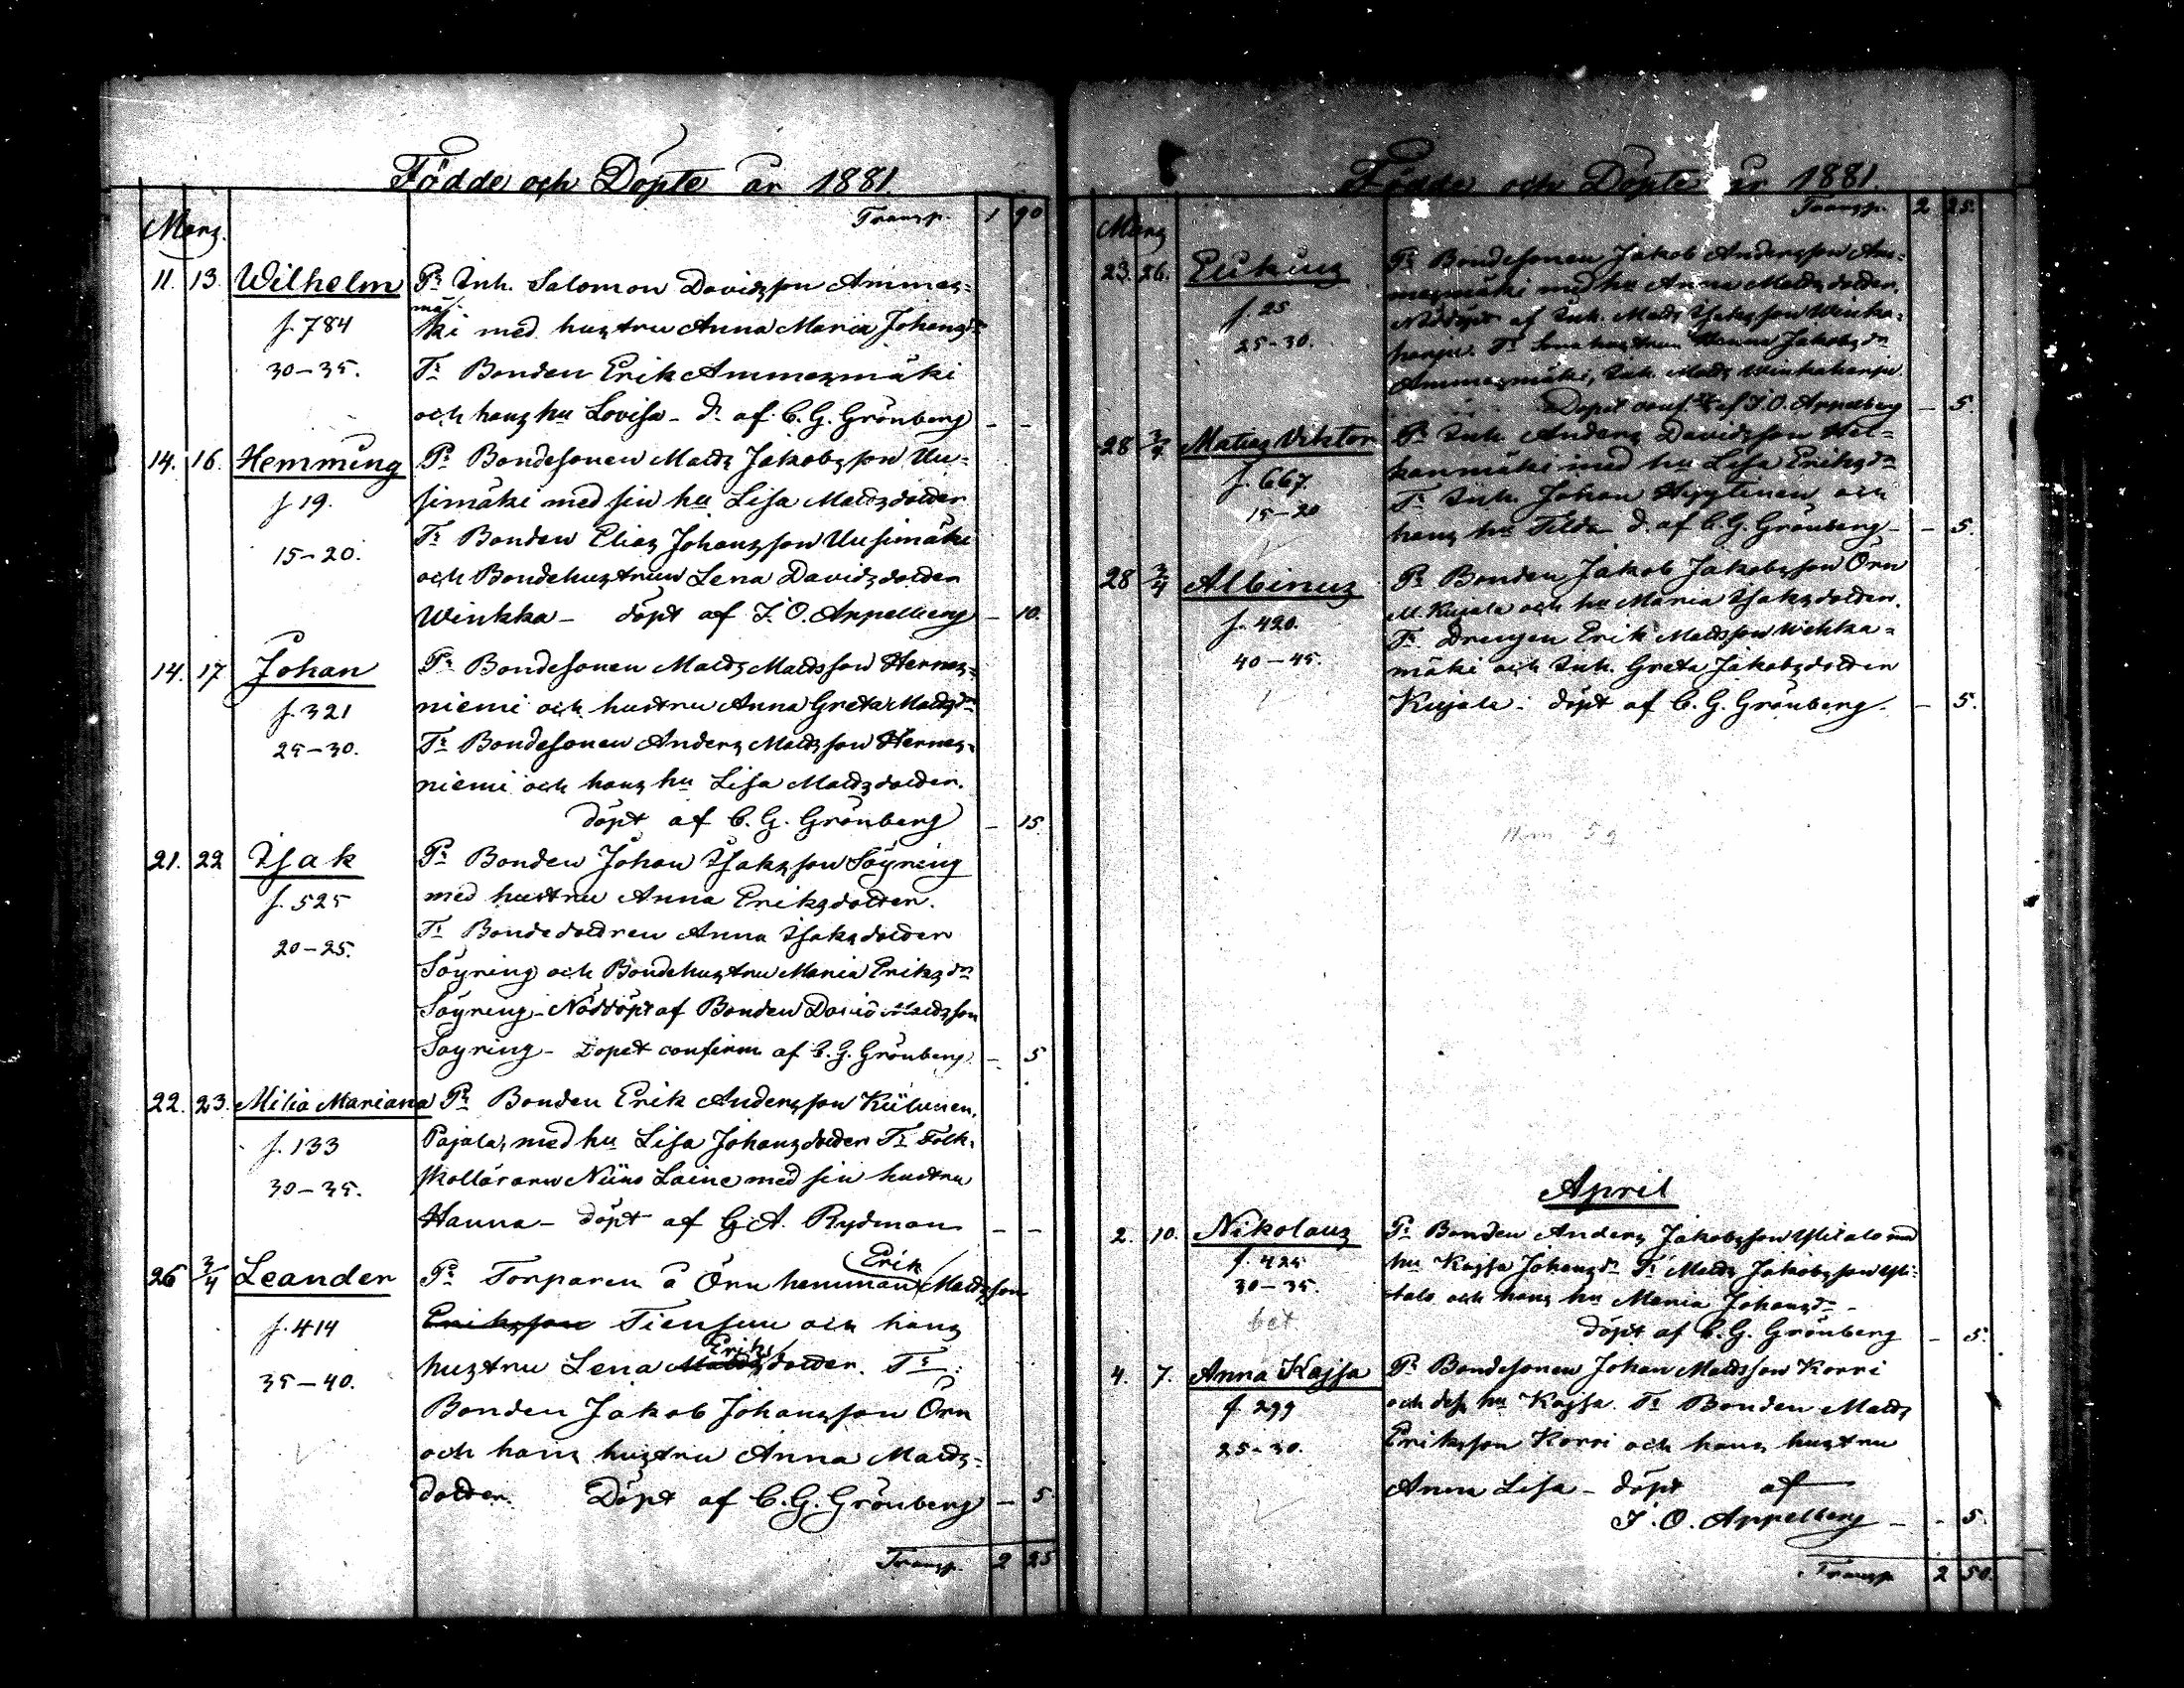 Födde och Döpte år 1881
Transp. 1 90
Mars.
11. 13. Wilhelm Prs Inh. Salomon Davidsson Ammes=
mäs-
f. 784 ki med hustru Anna Maria Johansdr
30-35. Tr Bonden Erik Ammesmäki
och hans hu Lovisa - d. af C. G. Grönberg - -
14. 16. Hemming Pr Bondesonen Matts Jakobsson Uu=
f 19. simäki med sin hu Lisa Mattsdotter
15-20. Tr Bonden Elias Johansson Uusimäki
och Bondehustrun Lena Davidsdotter
Winkka - döpt af I. O. Appelberg - 10.
14. 17 Johan Pr Bondesonen Matts Mattsson Hernes=
f. 321 niemi och hustru Anna Greta Mattsdr
25-30. Tr Bondesonen Anders Mattsson Hernes=
niemi och hans hu Lisa Mattsdotter.
döpt af C. G. Grönberg - 15.
21. 22 Isak Pr Bonden Johan Isaksson Söyring
f. 525 med hustru Anna Eriksdotter.
20-25. Tr Bondedottren Anna Isaksdotter
Söyring och Bondehustru Maria Eriksdr
Söyring - Nöddöpt af Bonden David Mattsson
Söyring - Dopet confirm af C. G. Grönberg. - 5
22. 23. Milia Mariana Pr Bonden Erik Andersson Kiilunen.
f. 133 Pajala, med hu Lisa Johansdotter Tr Folk=
30-35. skolläraren Niino Laine med sin hustru
Hanna - döpt af G. A. Rydman - -
26 3/4 Leander Pr Torparen å Örn hemman Erik Mattsson
f. 414 Eriksson Tiensuu och hans
35-40. hustru Lena Matts Eriksdotter. Tr:
Bonden Jakob Johansson Örn
och hans hustru Anna Matts=
dotter. Döpt af C. G. Grönberg - 5.
Transp. 2 25
Födde och Döpte år 1881.
Transp. 2 25.
Mars
23. 26. Pr Bondesonen Jakob Andersson Am=
f. 25 mesmäki med hu Anna Mattsdotter.
25-30. Nöddöpt af Inh. Matts Isaksson Winka=
harju. Tr hustrun Jakobsdr
Ammesmäki, Inh. Matts Winkaharju.
Dopet conf. af I. O. Appelberg - 5.
28 3/4 Matias Viktor Pr Inh. Anders Davidsson
f. 667. kanmäki med hu Lisa Eriksdr
15-20 Tr Inh. Johan Hyytinen och
hans hu Tilda d. af C. G. Grönberg - - 5.
28 3/4 Albinus Pr Bonden Jakob Jakobsson Örn
M. Kujala och hu Maria Isaksdotter.
f. 420. Tr. Drengen Erik Mattsson Wehka=
40-45. mäki och Inh. Greta Jakobsdotter
Kujala - döpt af C. G. Grönberg. - 5.
April
2. 10. Nikolaus Pr Bonden Anders Jakobsson Ylitalo med
f. 425 hu Kajsa Johansdr Tr Matts Jakobsson Yli=
30-35. talo och hans hu Maria Johansdr -
bet. döpt af C. G. Grönberg - 5.
4. 7. Anna Kajsa Pr Bondesonen Johan Mattsson Korri
f. 299 och dess hu Kajsa. Tr Bonden Matts
25-30. Eriksson Korri och hans hustru
Anna Lisa - döpt af
I. O. Appelberg - - 5.
Transp. 2 50.